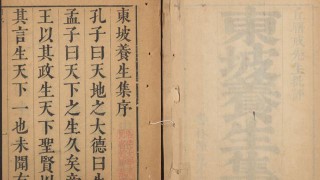 東坡養生集序
孔子曰天地之大德曰生
孟子曰天下之生久矣
王以其政生天下聖賢以
其言生天下一也未聞有
東坡養生集